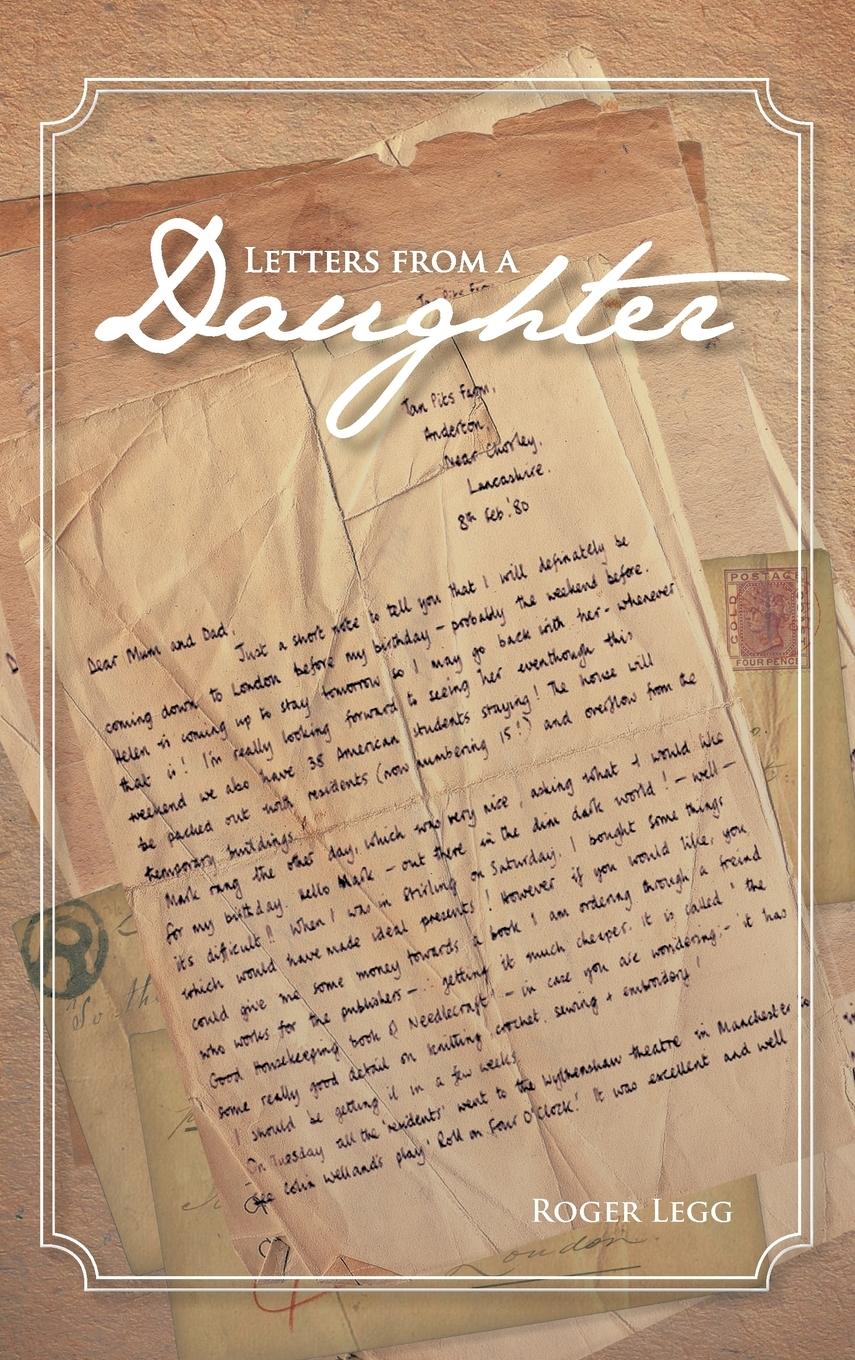 LETTERS FROM A
Daughter
Tan Pits Farm,
Anderton,
Near Chorley,
Lancashire.
8th Feb. '80
Dear Mum and Dad,
Just a short note to tell you that I will definately be
coming down to London before my birthday - probably the weekend before.
Helen is coming up to stay tomorrow so I may go back with her - whenever
that is! I'm really looking forward to seeing her eventhough this
weekend we also have 38 American students staying! The house will
be packed out with residents (now numbering 15!) and overflow from the
temporary buildings.
Mark rang the other day, which was very nice, asking what I would like
for my birthday. Hello Mark - out there in the dim dark world! - well -
it's difficult!! When I was in Stirling on Saturday, I bought some things
which would have made ideal presents! However if you would like, you
could give me some money towards a book I am ordering through a freind
who works for the publishers - getting it much cheaper. It is called 'the
Good Housekeeping book of Needlecraft' - in case you are wondering - it has
some really good detail on knitting, crochet, sewing + embroidery!
I should be getting it in a few weeks.
On Tuesday all the 'residents' went to the Wythenshaw theatre in Manchester to
see Colin Welland's play 'Roll on Four O'Clock'. It was excellent and well
POSTAGE
GOLD
FOUR PENCE
So th
ROGER LEGG
London.